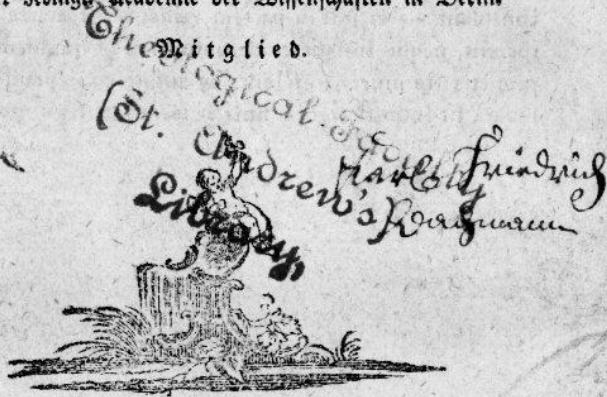 Königl. Academie der Wissenschaften in Berlin
Mitglied.
Theological
(St. Andrew's)
Library,
Friedrich